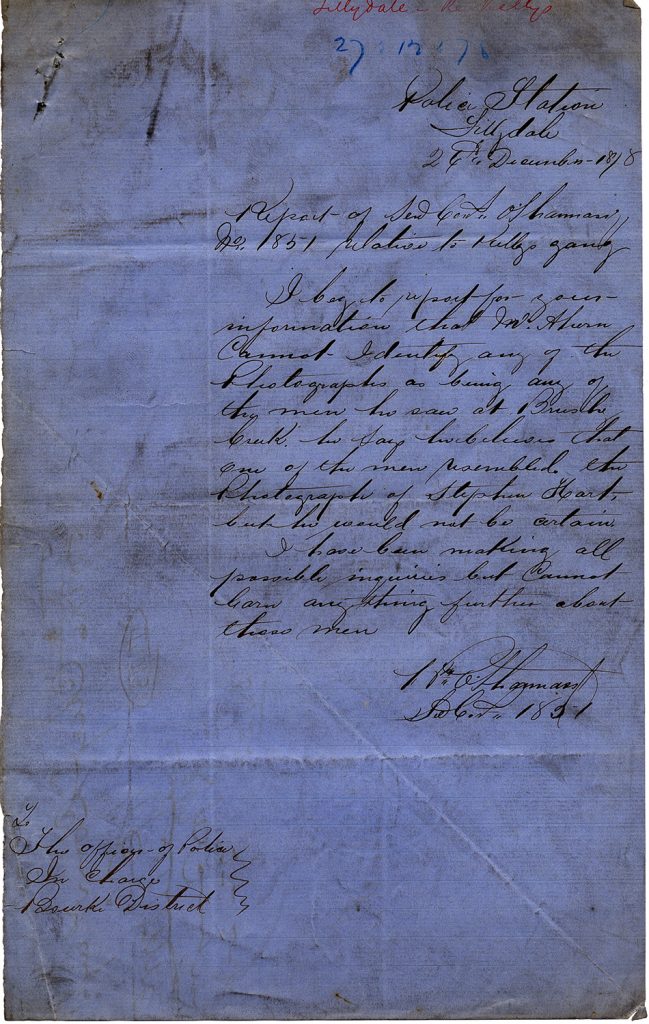 Lillydale - Re Kellys
27.12.78
Police Station
Lillydale
24th December 1878
Report of Sen Const O'Shannassy
No. 1851 relative to Kellys gang
I beg to report for your
information that Mr. Ahern
Cannot Identify any of the
Photographs as being any of
the men he saw at Brush
Creek. he says he believes that
one of the men resembled the
Photograph of Stephen Hart,
but he would not be certain
I have been making all
possible inquiries but Cannot
learn anything further about
those men
Sen Const 1851
To
The officer of Police
In Charge
Bourke District